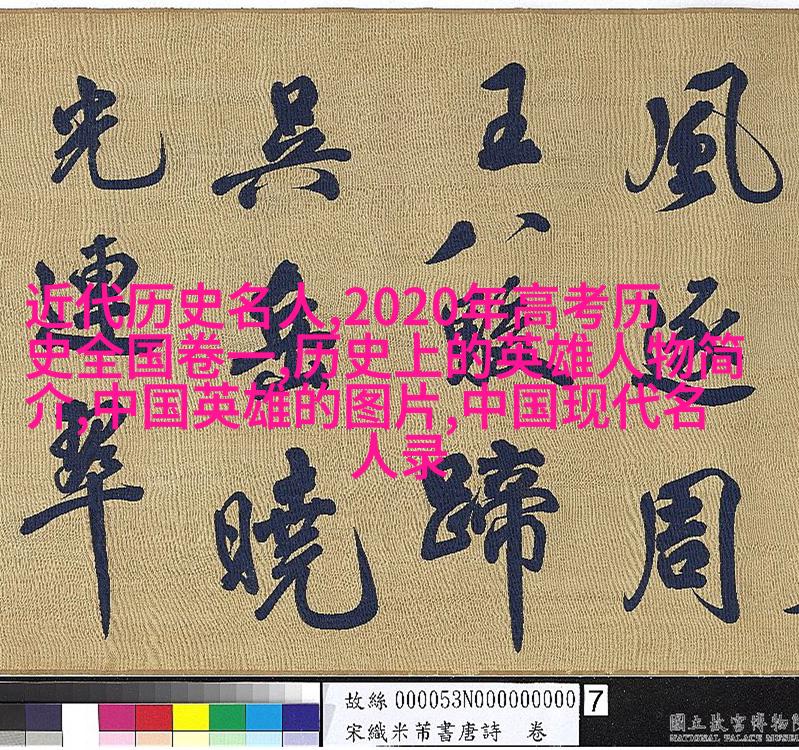 風逐周
王八駿蹄
吳曉
光連翠
近代历史名人,2020年高考历
史全国卷一,历史上的英雄人物简
介,中国英雄的图片,中国现代名
人录
故絲 000053N000000000 7
宋織米芾書唐詩 卷
國立故宮博物院
NATIONAL PALACE